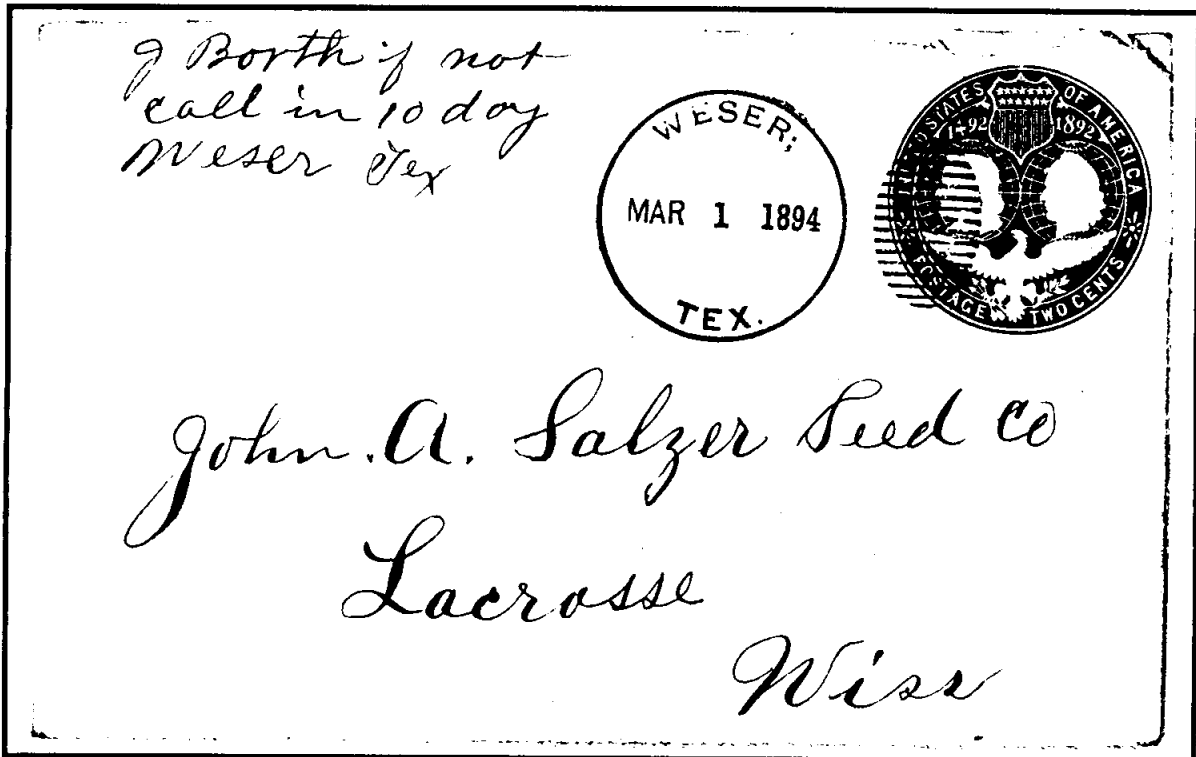 J Borth if not
call in 10 day
Weser Tex
WESER;
MAR 1 1894
TEX.
UNITED STATES OF AMERICA
1492 1892
POSTAGE TWO CENTS
John. A. Salzer Seed Co
Lacrosse
Wiss